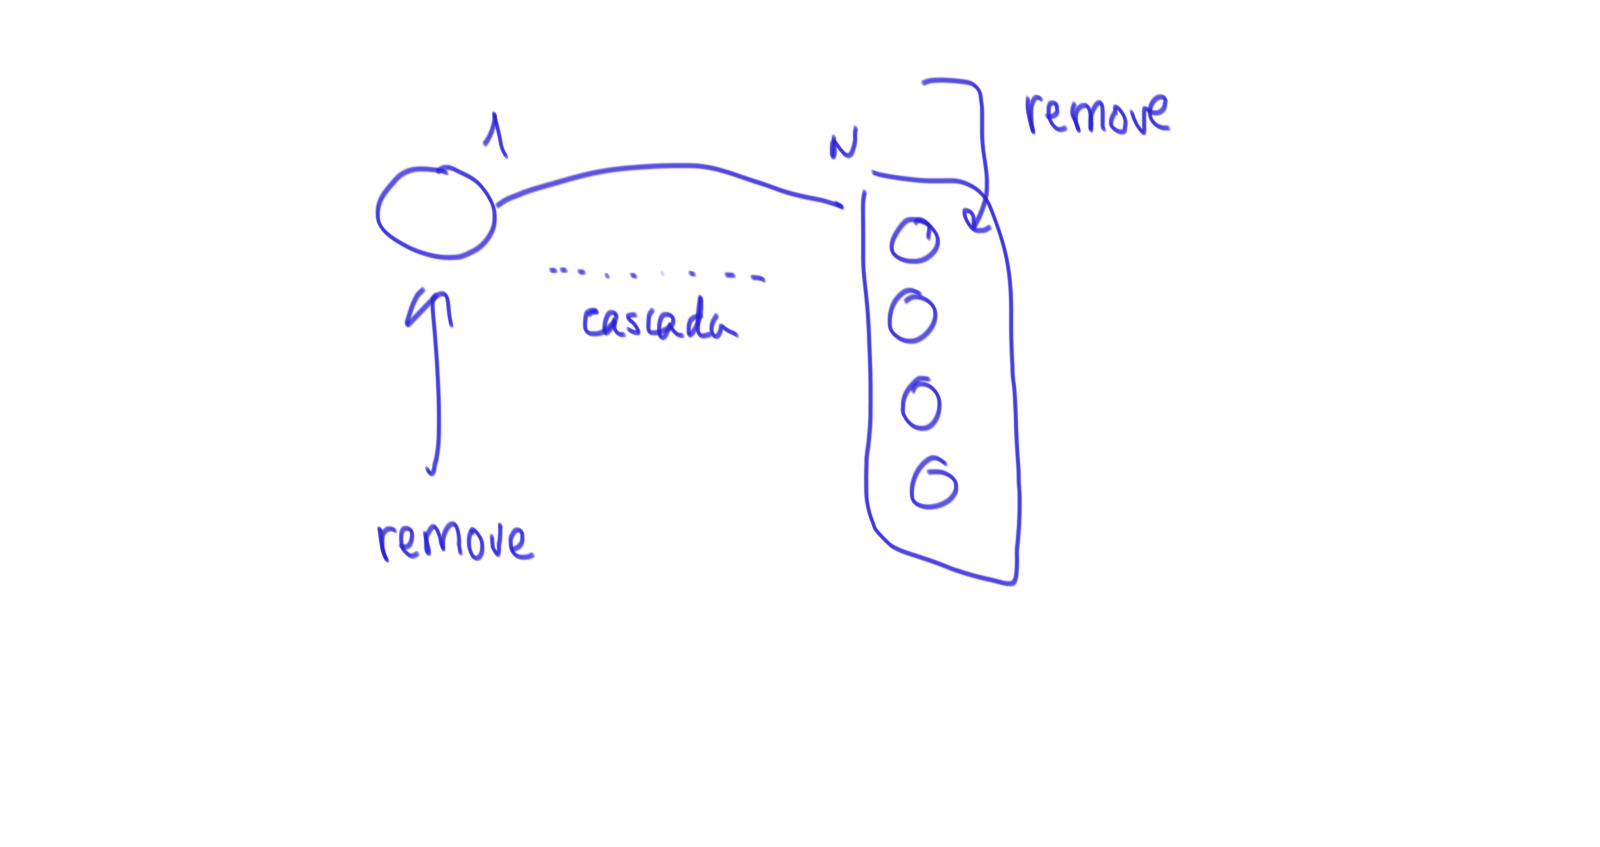 1
N
remove
cascada
remove